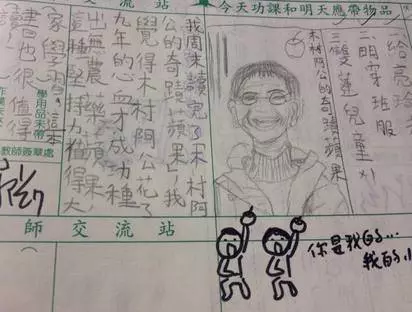 今天功課和明天應帶物品
二明穿班服
三雙蓮兒童×1
木村阿公的奇蹟蘋果
交流站
我周末讀完了木村阿
公的奇蹟蘋果，我
覺得木村阿公花了
九年的心血才成功種
出無農藥蘋果
堅持力值得大
家學習，這本
書也很值得
學用品未帶
教師簽章處
師交流站
你是我的...
我的小